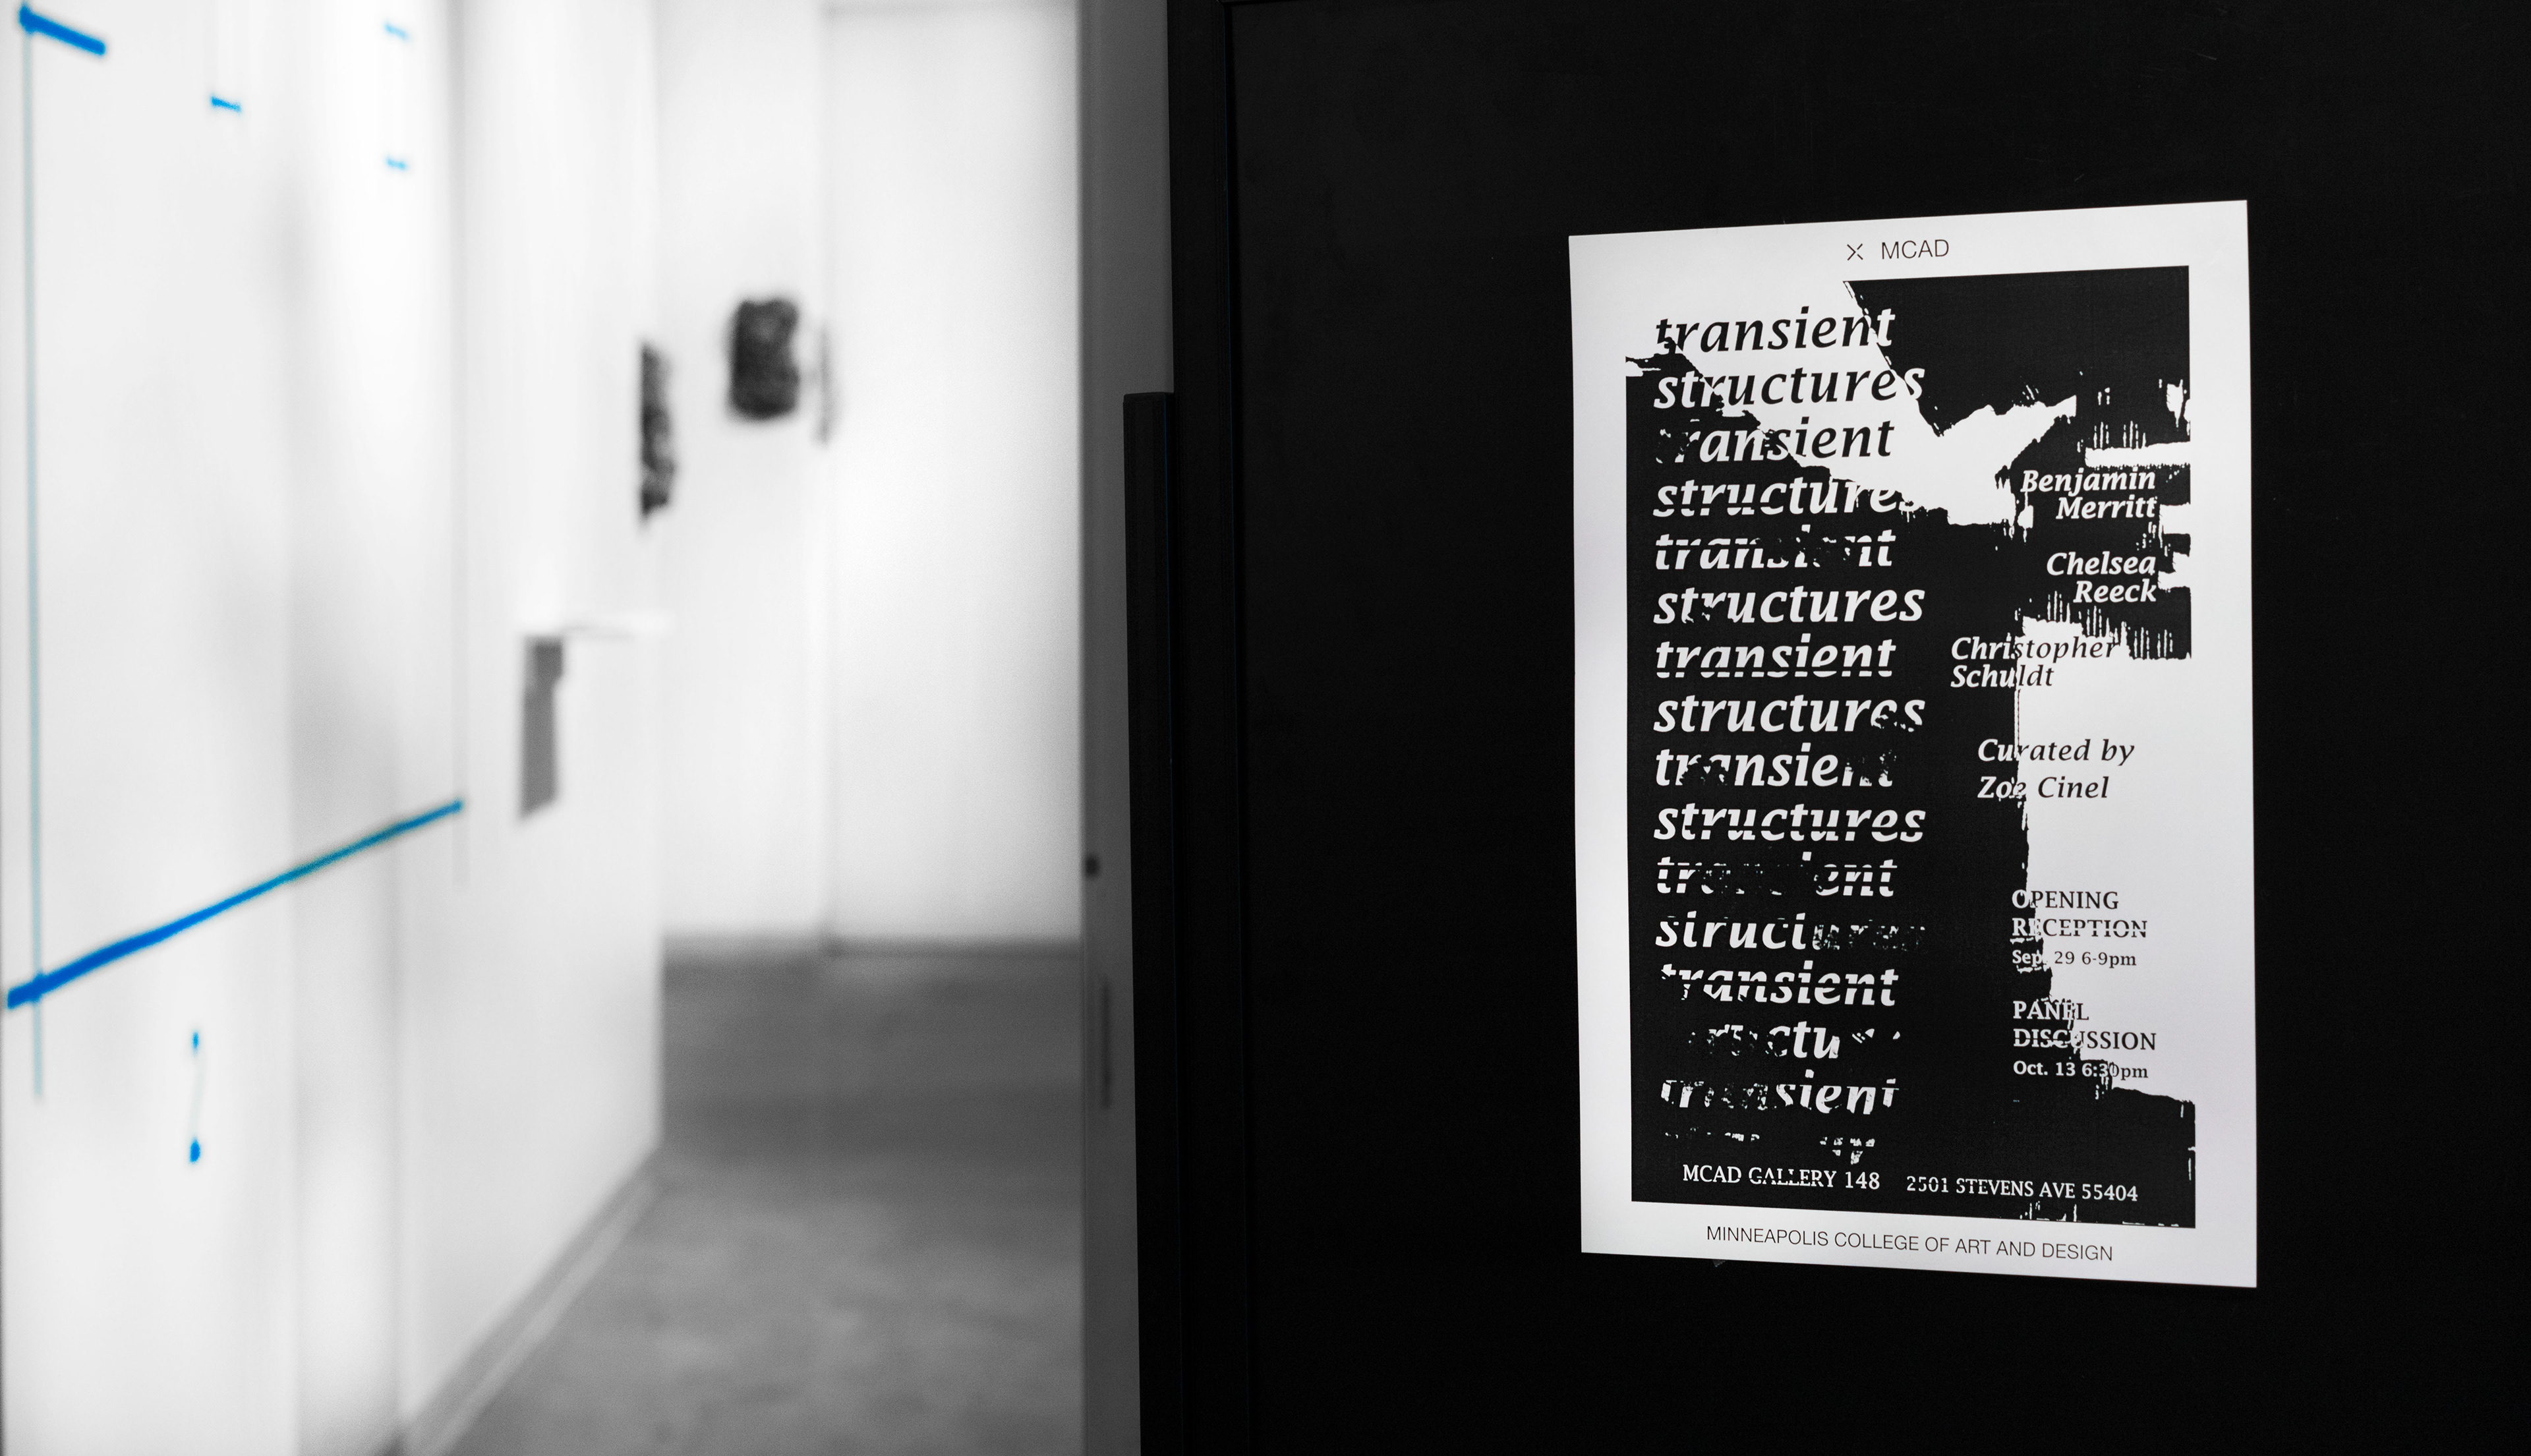 MCAD
transient
structures
transient
structures
transient
structures
transient
structures
transient
structures
transient
structures
transient
structures
transient
Benjamin
Merritt
Chelsea
Reeck
Christopher
Schuldt
Curated by
Zoe Cinel
OPENING
RECEPTION
Sep. 29 6-9pm
PANEL
DISCUSSION
Oct. 13 6:30pm
MCAD GALLERY 148 2501 STEVENS AVE 55404
MINNEAPOLIS COLLEGE OF ART AND DESIGN